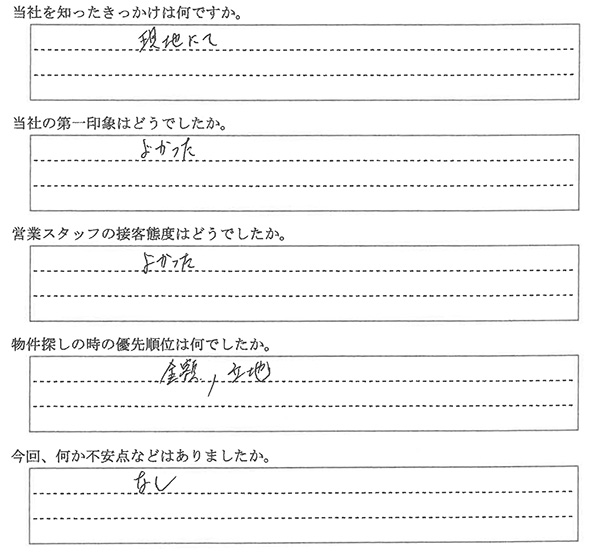 当社を知ったきっかけは何ですか。
現地にて
当社の第一印象はどうでしたか。
よかった
営業スタッフの接客態度はどうでしたか。
よかった
物件探しの時の優先順位は何でしたか。
金額,立地
今回、何か不安点などはありましたか。
なし